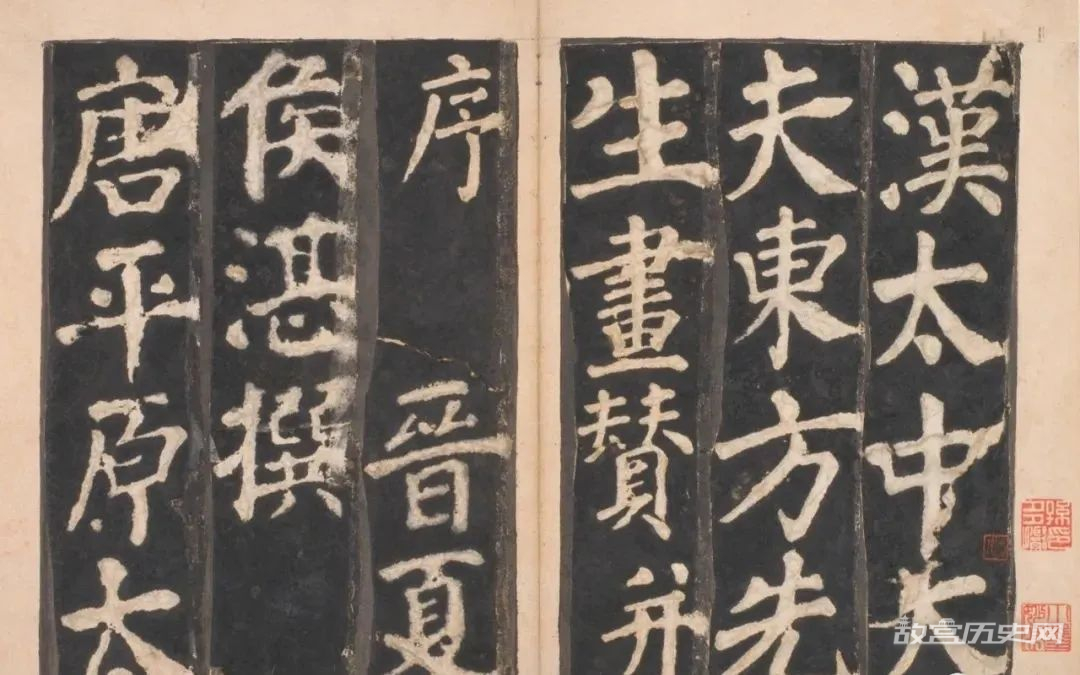 漢太中大
夫東方先
生畫賛并
序 晉夏
侯湛撰
唐平原太
故宫历史网